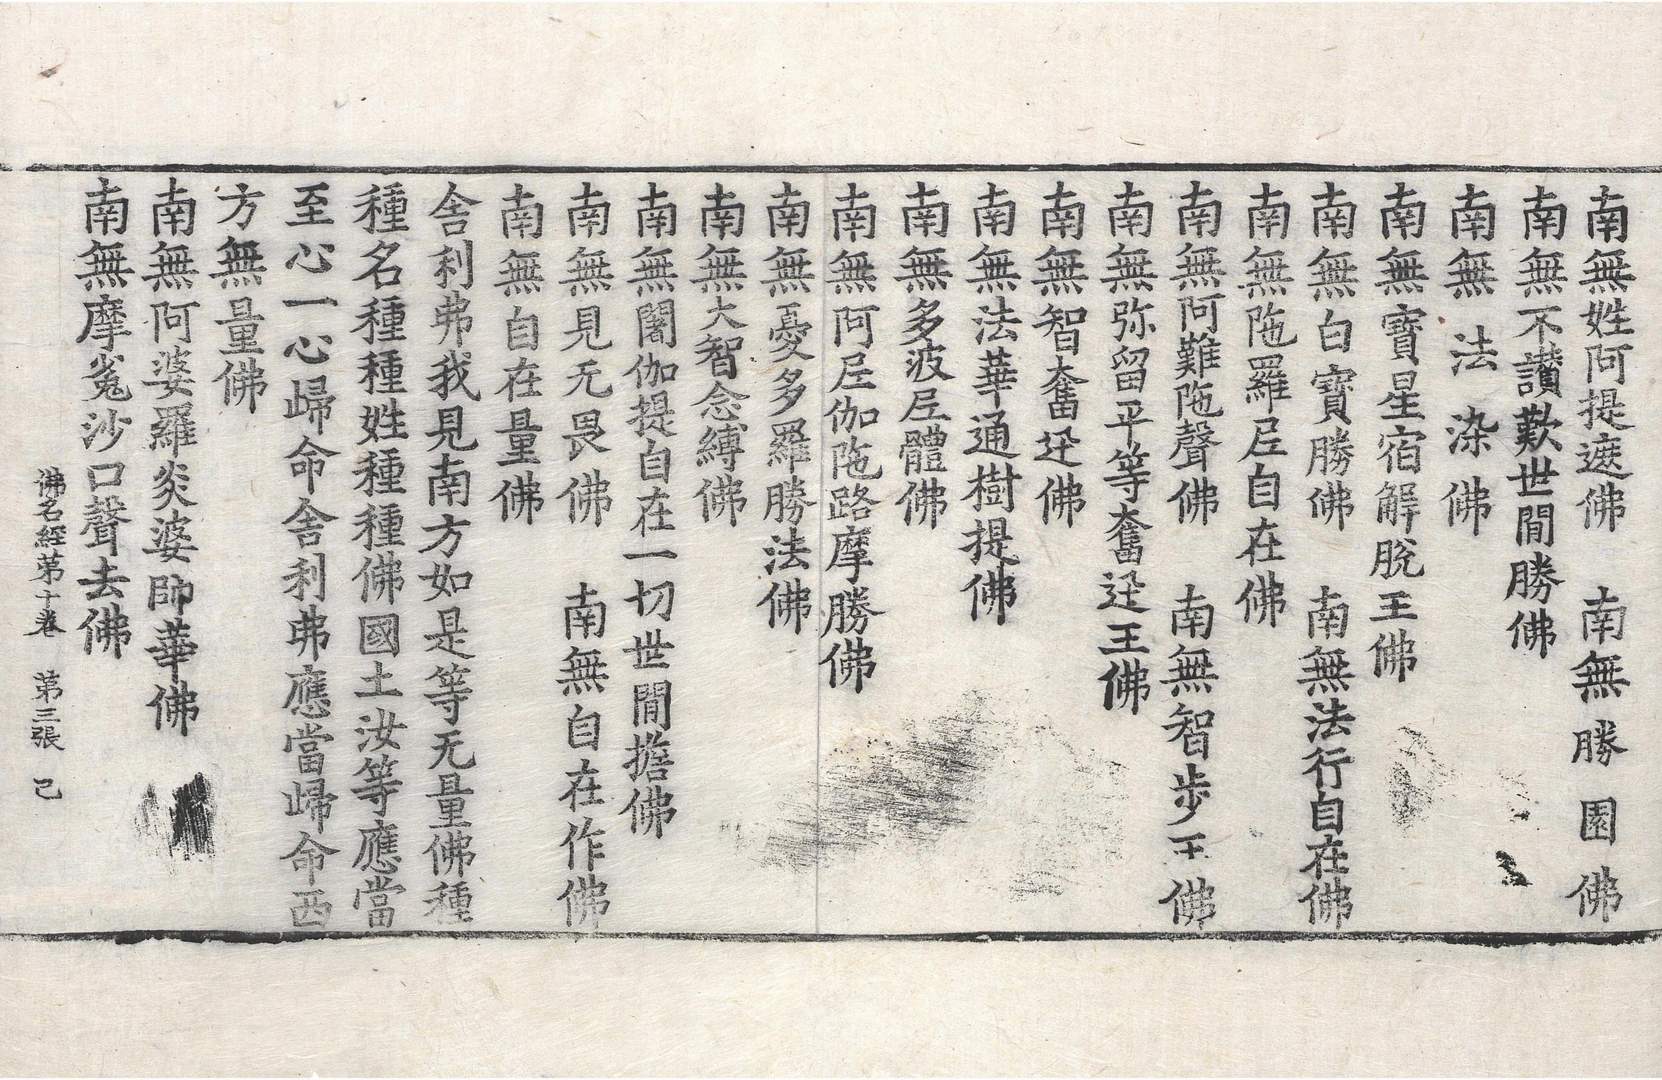 南無姓阿提遮佛　南無勝園佛
南無不讃歎世間勝佛
南無法染佛
南無寶星宿解脫王佛
南無白寶勝佛　南無法行自在佛
南無陁羅𡰱自在佛
南無阿難陁聲佛　南無智步王佛
南無弥留平等奮迅王佛
南無智奮迅佛
南無法華通樹提佛
南無多波𡰱體佛
南無阿𡰱伽陁路摩勝佛
南無憂多羅勝法佛
南無大智念縛佛
南無闍伽提自在一切世間擔佛
南無見无畏佛　南無自在作佛
南無自在量佛
舍利弗我見南方如是等无量佛種
種名種種姓種種佛國土汝等應當
至心一心歸命舍利弗應當歸命西
方無量佛
南無阿婆羅炎婆師華佛
南無摩㝹沙口聲去佛
佛名經第十卷　第三張　己